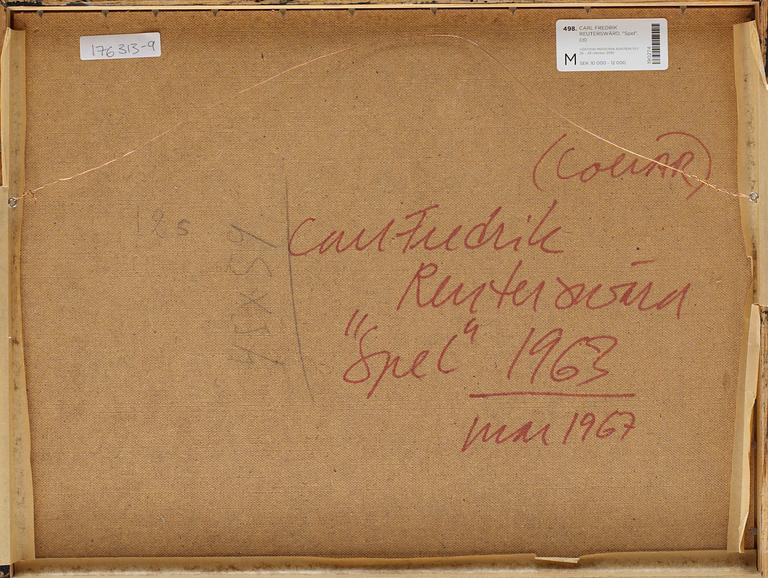 176313-9
498. CARL FREDRIK
REUTERSWÄRD, "Spel".
M SEK 10 000 - 12 000
(COLLAR)
Carl Fredrik
Reuterswärd
"Spel" 1963
mar 1967
125